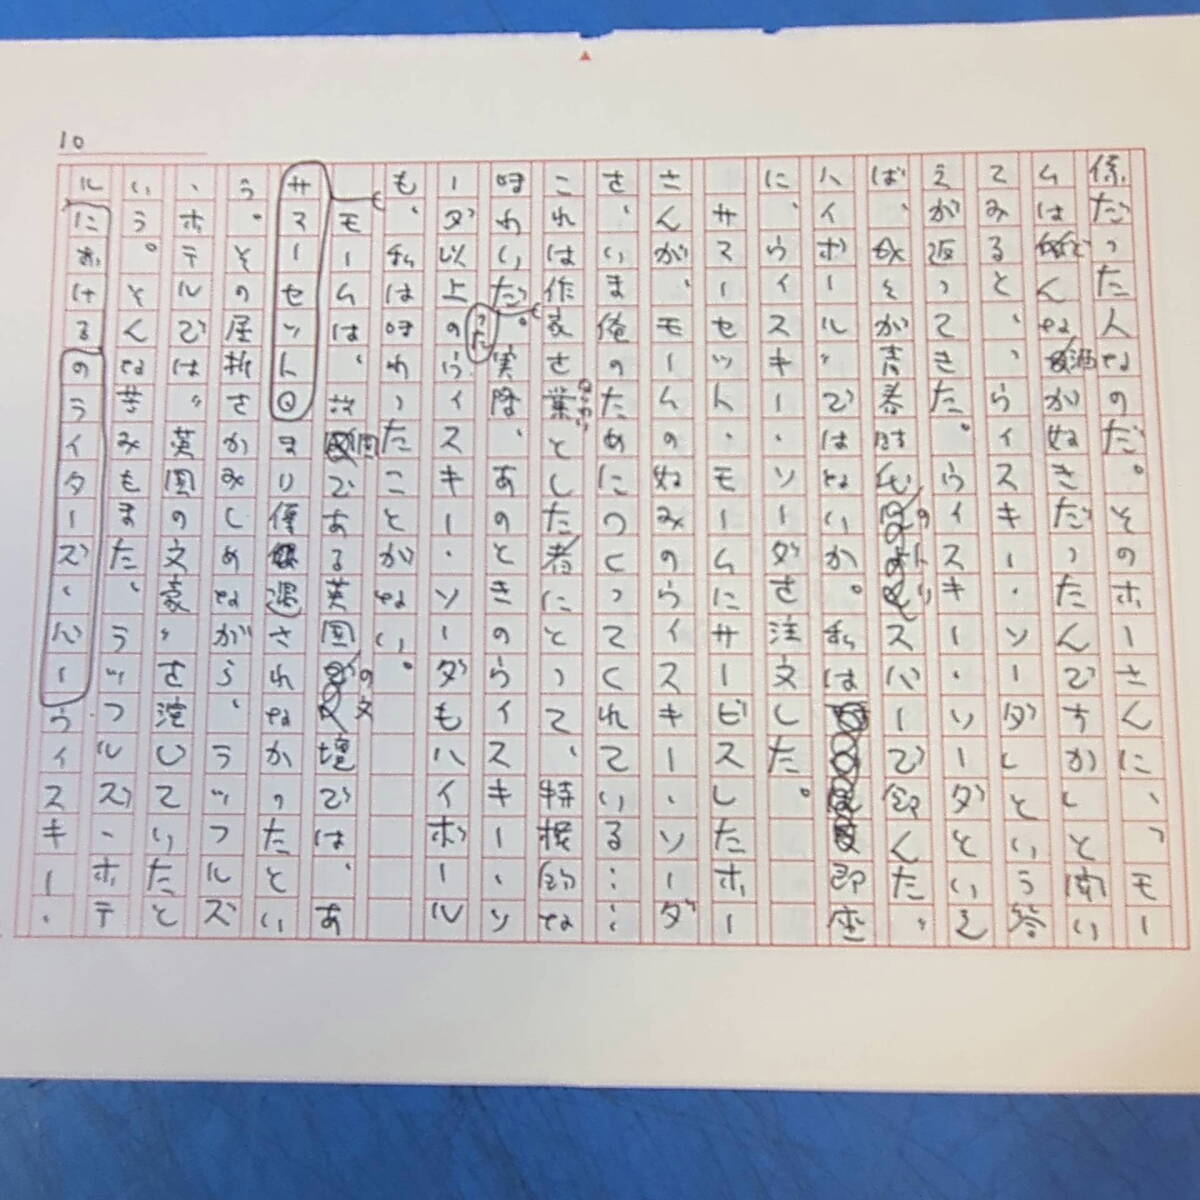 10
係だった人なのだ。そのホーさんに、「モー
ムはどんな酒がぬきだったんですかしと聞い
てみると、ウイスキー・ソーダしという答
えが返ってきた。ウイスキー・ソーダといえ
ば、我が青春時代のトリスバーで飲んだ〝
ハイボール〟ではないか。私は即座
に、ウイスキー・ソーダを注文した。
サマーセット・モームにサービスしたホー
さんが、モームのぬみのウイスキー・ソーダ
を、いま俺のためにつくってくれている……
これは作家を業とした者にとって、特権的な
味わいだった。実際、あのときのウイスキー・ソ
ーダ以上のウイスキー・ソーダもハイボール
も、私は味わったことがない。
モームは、故国である英国の文壇では、あ
サマーセット・
まり優遇されなかったとい
う。その屈折をかみしめながら、ラッフルズ
・ホテルでは〝英国の文豪〟を演じていたと
いう。そんな苦みもまた、ラッフルズ・ホテ
ルにおけるのライターズ・バーウイスキー・